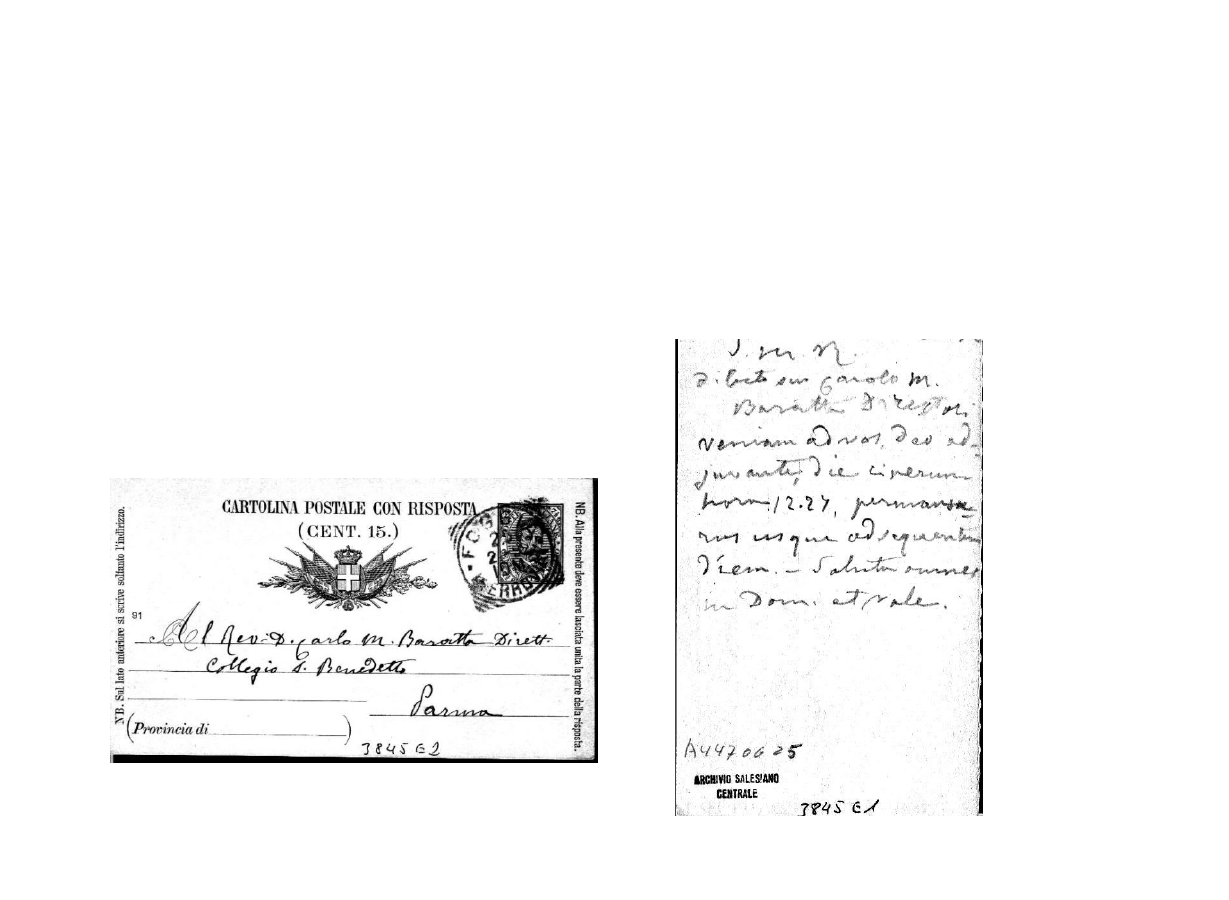 CARTOLINA POSTALE CON RISPOSTA
(CENT. 15.)
NB. Sul lato anteriore si scrive soltanto l'indirizzo.
NB. Alla presente deve essere lasciata unita la parte della risposta.
91
Al Rev. D. Carlo M. Baratta Dirett.
Collegio S. Benedetto
Parma
(Provincia di )
3845 E2
dilecto suo Carolo M.
Baratta Directori
veniam ad vos, Deo ad-
juvante, die cinerum
hora 12.27, permansu-
rus usque ad sequentem
diem. - Saluta omnes
in Dom. et vale.
A4470625
ARCHIVIO SALESIANO
CENTRALE
3845 E1